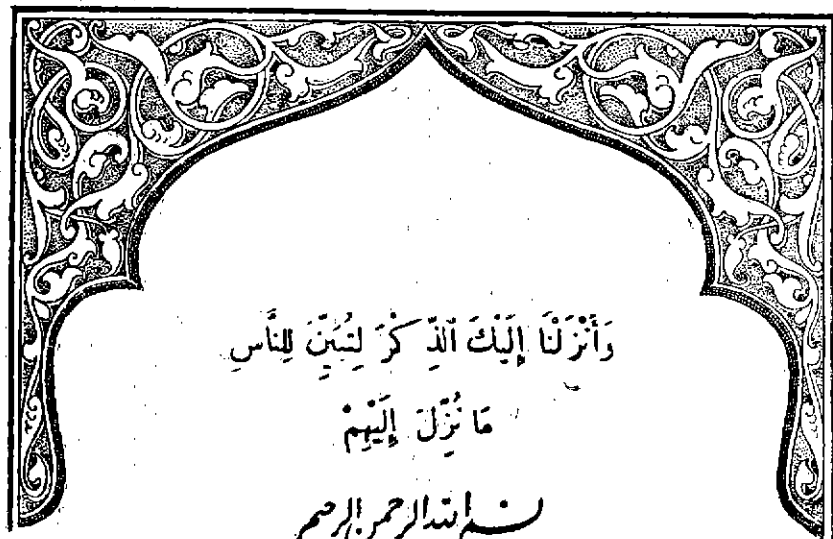 وَأَنْزَلْنَا إِلَيْكَ ٱلذِّكْرَ لِتُبَيِّنَ لِلنَّاسِ
مَا نُزِّلَ إِلَيْهِمْ
بسم الله الرحمن الرحيم